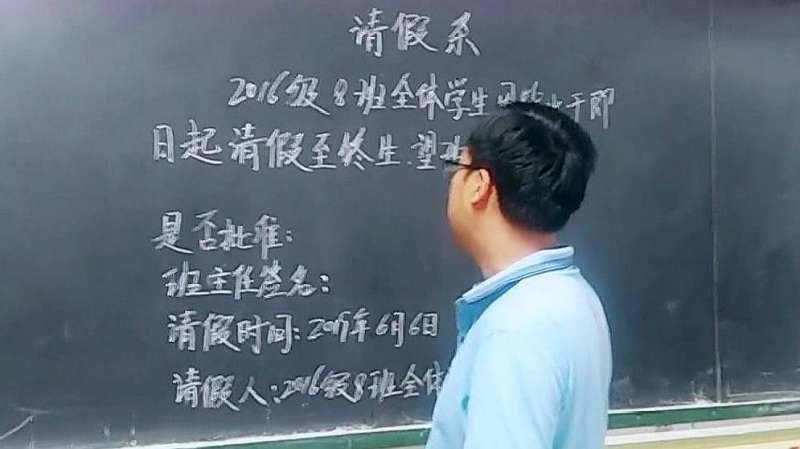 请假条
2016级8班全体学生 于即
日起请假至终生.望
是否批准:
班主任签名:
请假时间:2019年6月6日
请假人:2016级8班全体